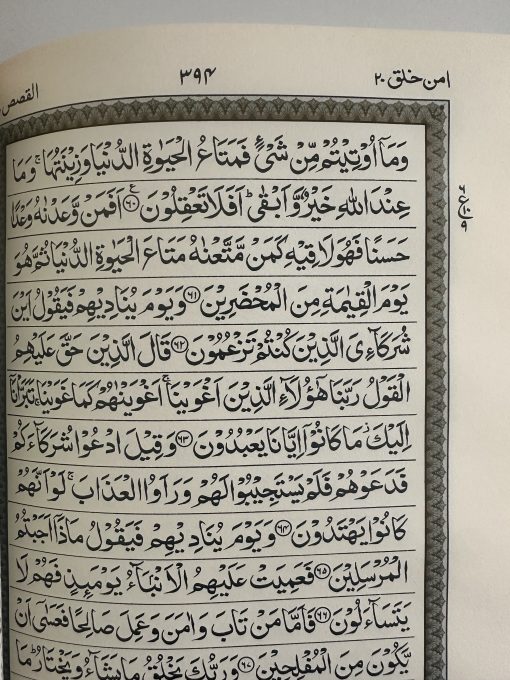 امن خلق ۲۰
۳۹۴
القصص
وَمَآ اُوْتِيْتُمْ مِّنْ شَيْءٍ فَمَتَاعُ الْحَيٰوةِ الدُّنْيَا وَزِيْنَتُهَا ۚ وَمَا
عِنْدَ اللّٰهِ خَيْرٌ وَّاَبْقٰى ؕ اَفَلَا تَعْقِلُوْنَ ﴿۶۰﴾ اَفَمَنْ وَّعَدْنٰهُ وَعْدًا
حَسَنًا فَهُوَ لَاقِيْهِ كَمَنْ مَّتَّعْنٰهُ مَتَاعَ الْحَيٰوةِ الدُّنْيَا ثُمَّ هُوَ
يَوْمَ الْقِيٰمَةِ مِنَ الْمُحْضَرِيْنَ ﴿۶۱﴾ وَيَوْمَ يُنَادِيْهِمْ فَيَقُوْلُ اَيْنَ
شُرَكَآءِيَ الَّذِيْنَ كُنْتُمْ تَزْعُمُوْنَ ﴿۶۲﴾ قَالَ الَّذِيْنَ حَقَّ عَلَيْهِمُ
الْقَوْلُ رَبَّنَا هٰٓؤُلَآءِ الَّذِيْنَ اَغْوَيْنَا ۚ اَغْوَيْنٰهُمْ كَمَا غَوَيْنَا ۚ تَبَرَّاْنَآ
اِلَيْكَ ۫ مَا كَانُوْٓا اِيَّانَا يَعْبُدُوْنَ ﴿۶۳﴾ وَقِيْلَ ادْعُوْا شُرَكَآءَكُمْ
فَدَعَوْهُمْ فَلَمْ يَسْتَجِيْبُوْا لَهُمْ وَرَاَوُا الْعَذَابَ ۚ لَوْ اَنَّهُمْ
كَانُوْا يَهْتَدُوْنَ ﴿۶۴﴾ وَيَوْمَ يُنَادِيْهِمْ فَيَقُوْلُ مَاذَآ اَجَبْتُمُ
الْمُرْسَلِيْنَ ﴿۶۵﴾ فَعَمِيَتْ عَلَيْهِمُ الْاَنْۢبَآءُ يَوْمَئِذٍ فَهُمْ لَا
يَتَسَآءَلُوْنَ ﴿۶۶﴾ فَاَمَّا مَنْ تَابَ وَاٰمَنَ وَعَمِلَ صَالِحًا فَعَسٰٓى اَنْ
يَّكُوْنَ مِنَ الْمُفْلِحِيْنَ ﴿۶۷﴾ وَرَبُّكَ يَخْلُقُ مَا يَشَآءُ وَيَخْتَارُ ؕ مَا
۶
ع ۱۰
۹